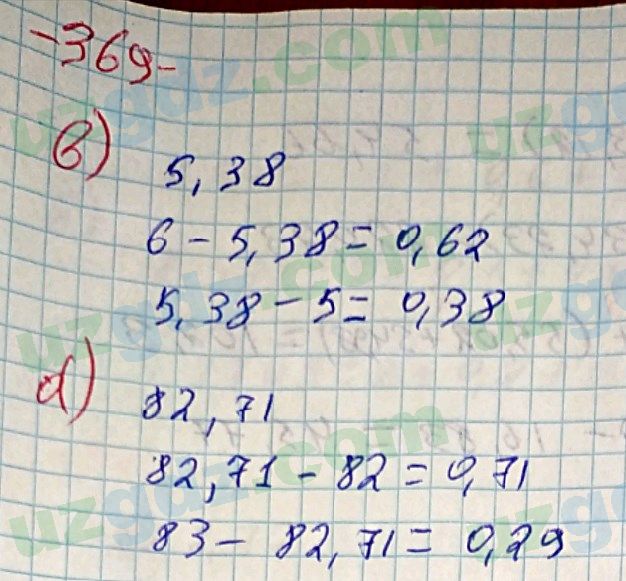 -369-
b)
5,38
6 - 5,38 = 0,62
5,38 - 5 = 0,38
d)
82,71
82,71 - 82 = 0,71
83 - 82,71 = 0,29